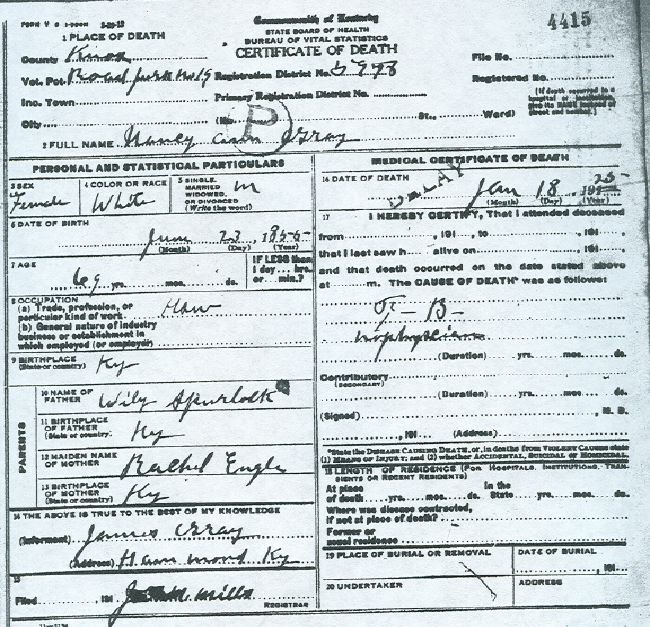 4415
Commonwealth of Kentucky
STATE BOARD OF HEALTH
BUREAU OF VITAL STATISTICS
CERTIFICATE OF DEATH
1 PLACE OF DEATH
County Knox
File No.
Vot. Pct. Registration District No.
Registered No.
Inc. Town Primary Registration District No.
(If death occurred in a hospital or institution, give its NAME instead of street and number.)
City (No. St., Ward)
P
2 FULL NAME Nancy Gray
PERSONAL AND STATISTICAL PARTICULARS
3 SEX
Female
4 COLOR OR RACE
White
5 SINGLE, MARRIED, WIDOWED, OR DIVORCED
(Write the word)
m
6 DATE OF BIRTH
June 23, 1855
(Month) (Day) (Year)
7 AGE
69 yrs. mos. ds.
IF LESS than 1 day... hrs. or ... min.?
8 OCCUPATION
(a) Trade, profession, or particular kind of work
(b) General nature of industry business or establishment in which employed (or employer)
9 BIRTHPLACE
(State or country)
Ky
PARENTS
10 NAME OF FATHER
Wily Spurlock
11 BIRTHPLACE OF FATHER
(State or country)
Ky
12 MAIDEN NAME OF MOTHER
Rachel Engle
13 BIRTHPLACE OF MOTHER
(State or country)
Ky
14 THE ABOVE IS TRUE TO THE BEST OF MY KNOWLEDGE
(Informant) James Gray
(Address) Hammond Ky
15
Filed , 191 Mills
REGISTRAR
MEDICAL CERTIFICATE OF DEATH
DELAY
16 DATE OF DEATH
Jan 18, 1925
(Month) (Day) (Year)
17 I HEREBY CERTIFY, That I attended deceased
from , 191 , to , 191 ,
that I last saw h alive on , 191 ,
and that death occurred on the date stated above
at m. The CAUSE OF DEATH* was as follows:
T-B-
no physician
(Duration) yrs. mos. ds.
Contributory
(SECONDARY)
(Duration) yrs. mos. ds.
(Signed) , M. D.
, 191 (Address)
*State the DISEASE CAUSING DEATH, or, in deaths from VIOLENT CAUSES state (1) MEANS OF INJURY; and (2) whether ACCIDENTAL, SUICIDAL or HOMICIDAL.
18 LENGTH OF RESIDENCE (FOR HOSPITALS, INSTITUTIONS, TRANSIENTS OR RECENT RESIDENTS)
At place of death yrs. mos. ds. In the State yrs. mos. ds.
Where was disease contracted,
if not at place of death?
Former or
usual residence
19 PLACE OF BURIAL OR REMOVAL
DATE OF BURIAL
, 191
20 UNDERTAKER
ADDRESS